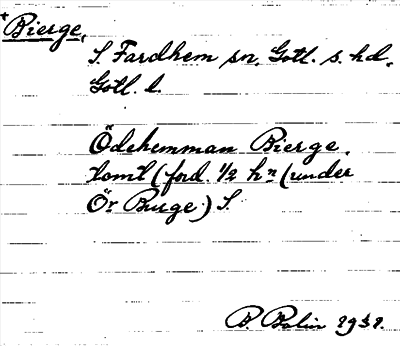 *Bierge,
S. Fardhem sn, Gotl. s. hd,
Gotl. l.
Ödehemman Bierge,
tomt (ford. 1/2 hn (under
Ör Burge) S.
B. Bolin 1931.